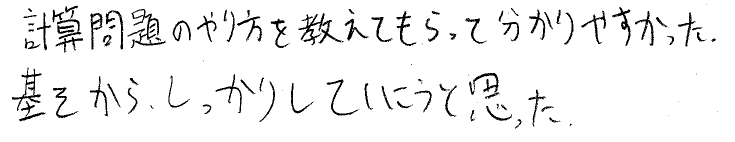 計算問題のやり方を教えてもらって分かりやすかった.
基そから、しっかりしていこうと思った.